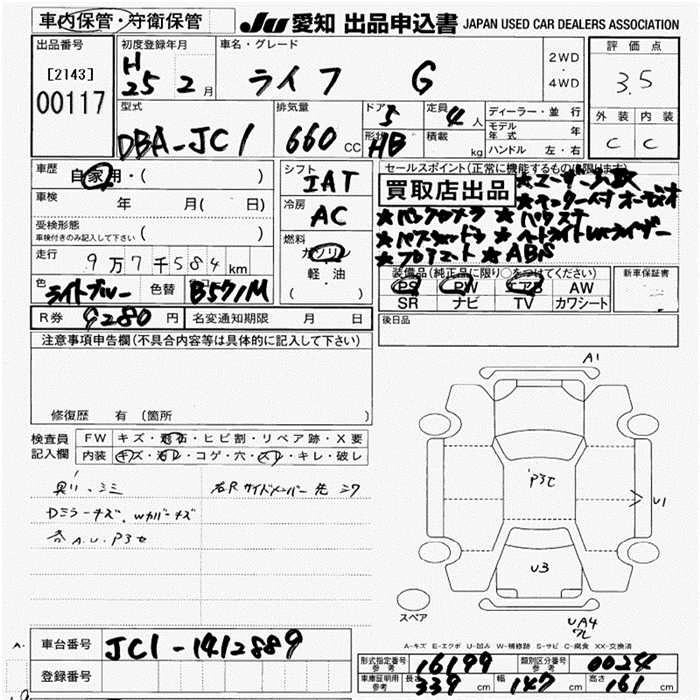 車内保管・守衛保管 JU 愛知 出品申込書 JAPAN USED CAR DEALERS ASSOCIATION
出品番号 初度登録年月 車名・グレード 2WD ・ 4WD 評価点
[2143] H 25 2月 ライフ G 3.5
00117
型式 排気量 ドア 定員 ディーラー・並行 外装 内装
DBA-JC1 660 CC 5 4人 モデル年式 年 C C
形状 HB 積載 kg ハンドル 左・右
車歴 自家用・( ) シフト IAT セールスポイント(正常に機能するものに限ります)
車検 年 月( 日) 冷房 AC 買取店出品 ★ユーザー買取
★モニター付オーディオ
受検形態 ( ) ★バックカメラ
車検付きのみ記入して下さい
燃料 ガソリン
走行 9万7千584km 軽・油 ★エアコン ★ABS
( ) 装備品(純正品に限り○をつけてください) 新車保証書
色 ライトブルー 色替 B571M PS PW エアB AW
SR ナビ TV カワシート
R券 9280円 名変通知期限 月 日 後日品
注意事項申告欄(不具合内容等は具体的に記入して下さい)
修復歴 有 (箇所 )
検査員 FW キズ・飛石・ヒビ割・リペア跡・X要
記入欄 内装 キズ・汚レ・コゲ・穴・スレ・キレ・破レ
Dミラーキズ、Wカバーキズ
各A.U.P3c
A1
P3C
U1
U3
スペア
UA4
A-キズ E-エクボ U-凹み W-補修跡 S-サビ C-腐食 XX-交換済
車台番号 JC1-1412889
登録番号
形式指定番号 参考 16199 類別区分番号 参考 0024
車庫証明用 参考 長さ 339 cm 幅 147 cm 高さ 161 cm